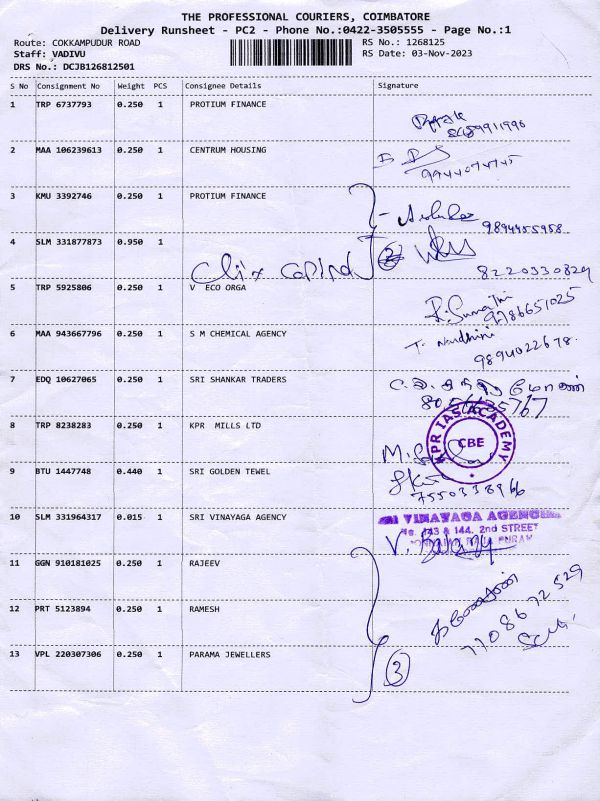 THE PROFESSIONAL COURIERS, COIMBATORE
Delivery Runsheet - PC2 - Phone No.:0422-3505555 - Page No.:1
Route: COKKAMPUDUR ROAD RS No.: 1268125
Staff: VADIVU RS Date: 03-Nov-2023
DRS No.: DCJB126812501
S No Consignment No Weight PCS Consignee Details Signature
1 TRP 6737793 0.250 1 PROTIUM FINANCE
2 MAA 106239613 0.250 1 CENTRUM HOUSING
9944074745
3 KMU 3392746 0.250 1 PROTIUM FINANCE
9894455958
4 SLM 331877873 0.950 1
2
8220330829
5 TRP 5925806 0.250 1 V ECO ORGA
R. Sumathi
9786651025
6 MAA 943667796 0.250 1 S M CHEMICAL AGENCY
T. Nandhini
9894022678.
7 EDQ 10627065 0.250 1 SRI SHANKAR TRADERS
8056635767
8 TRP 8238283 0.250 1 KPR MILLS LTD
KPR IAS ACADEMY
CBE
9 BTU 1447748 0.440 1 SRI GOLDEN TEWEL
7550338966
10 SLM 331964317 0.015 1 SRI VINAYAGA AGENCY
SRI VINAYAGA AGENCIES
No. 143 & 144, 2nd STREET
V. Balaji
11 GGN 910181025 0.250 1 RAJEEV
7708672529
12 PRT 5123894 0.250 1 RAMESH
13 VPL 220307306 0.250 1 PARAMA JEWELLERS
3